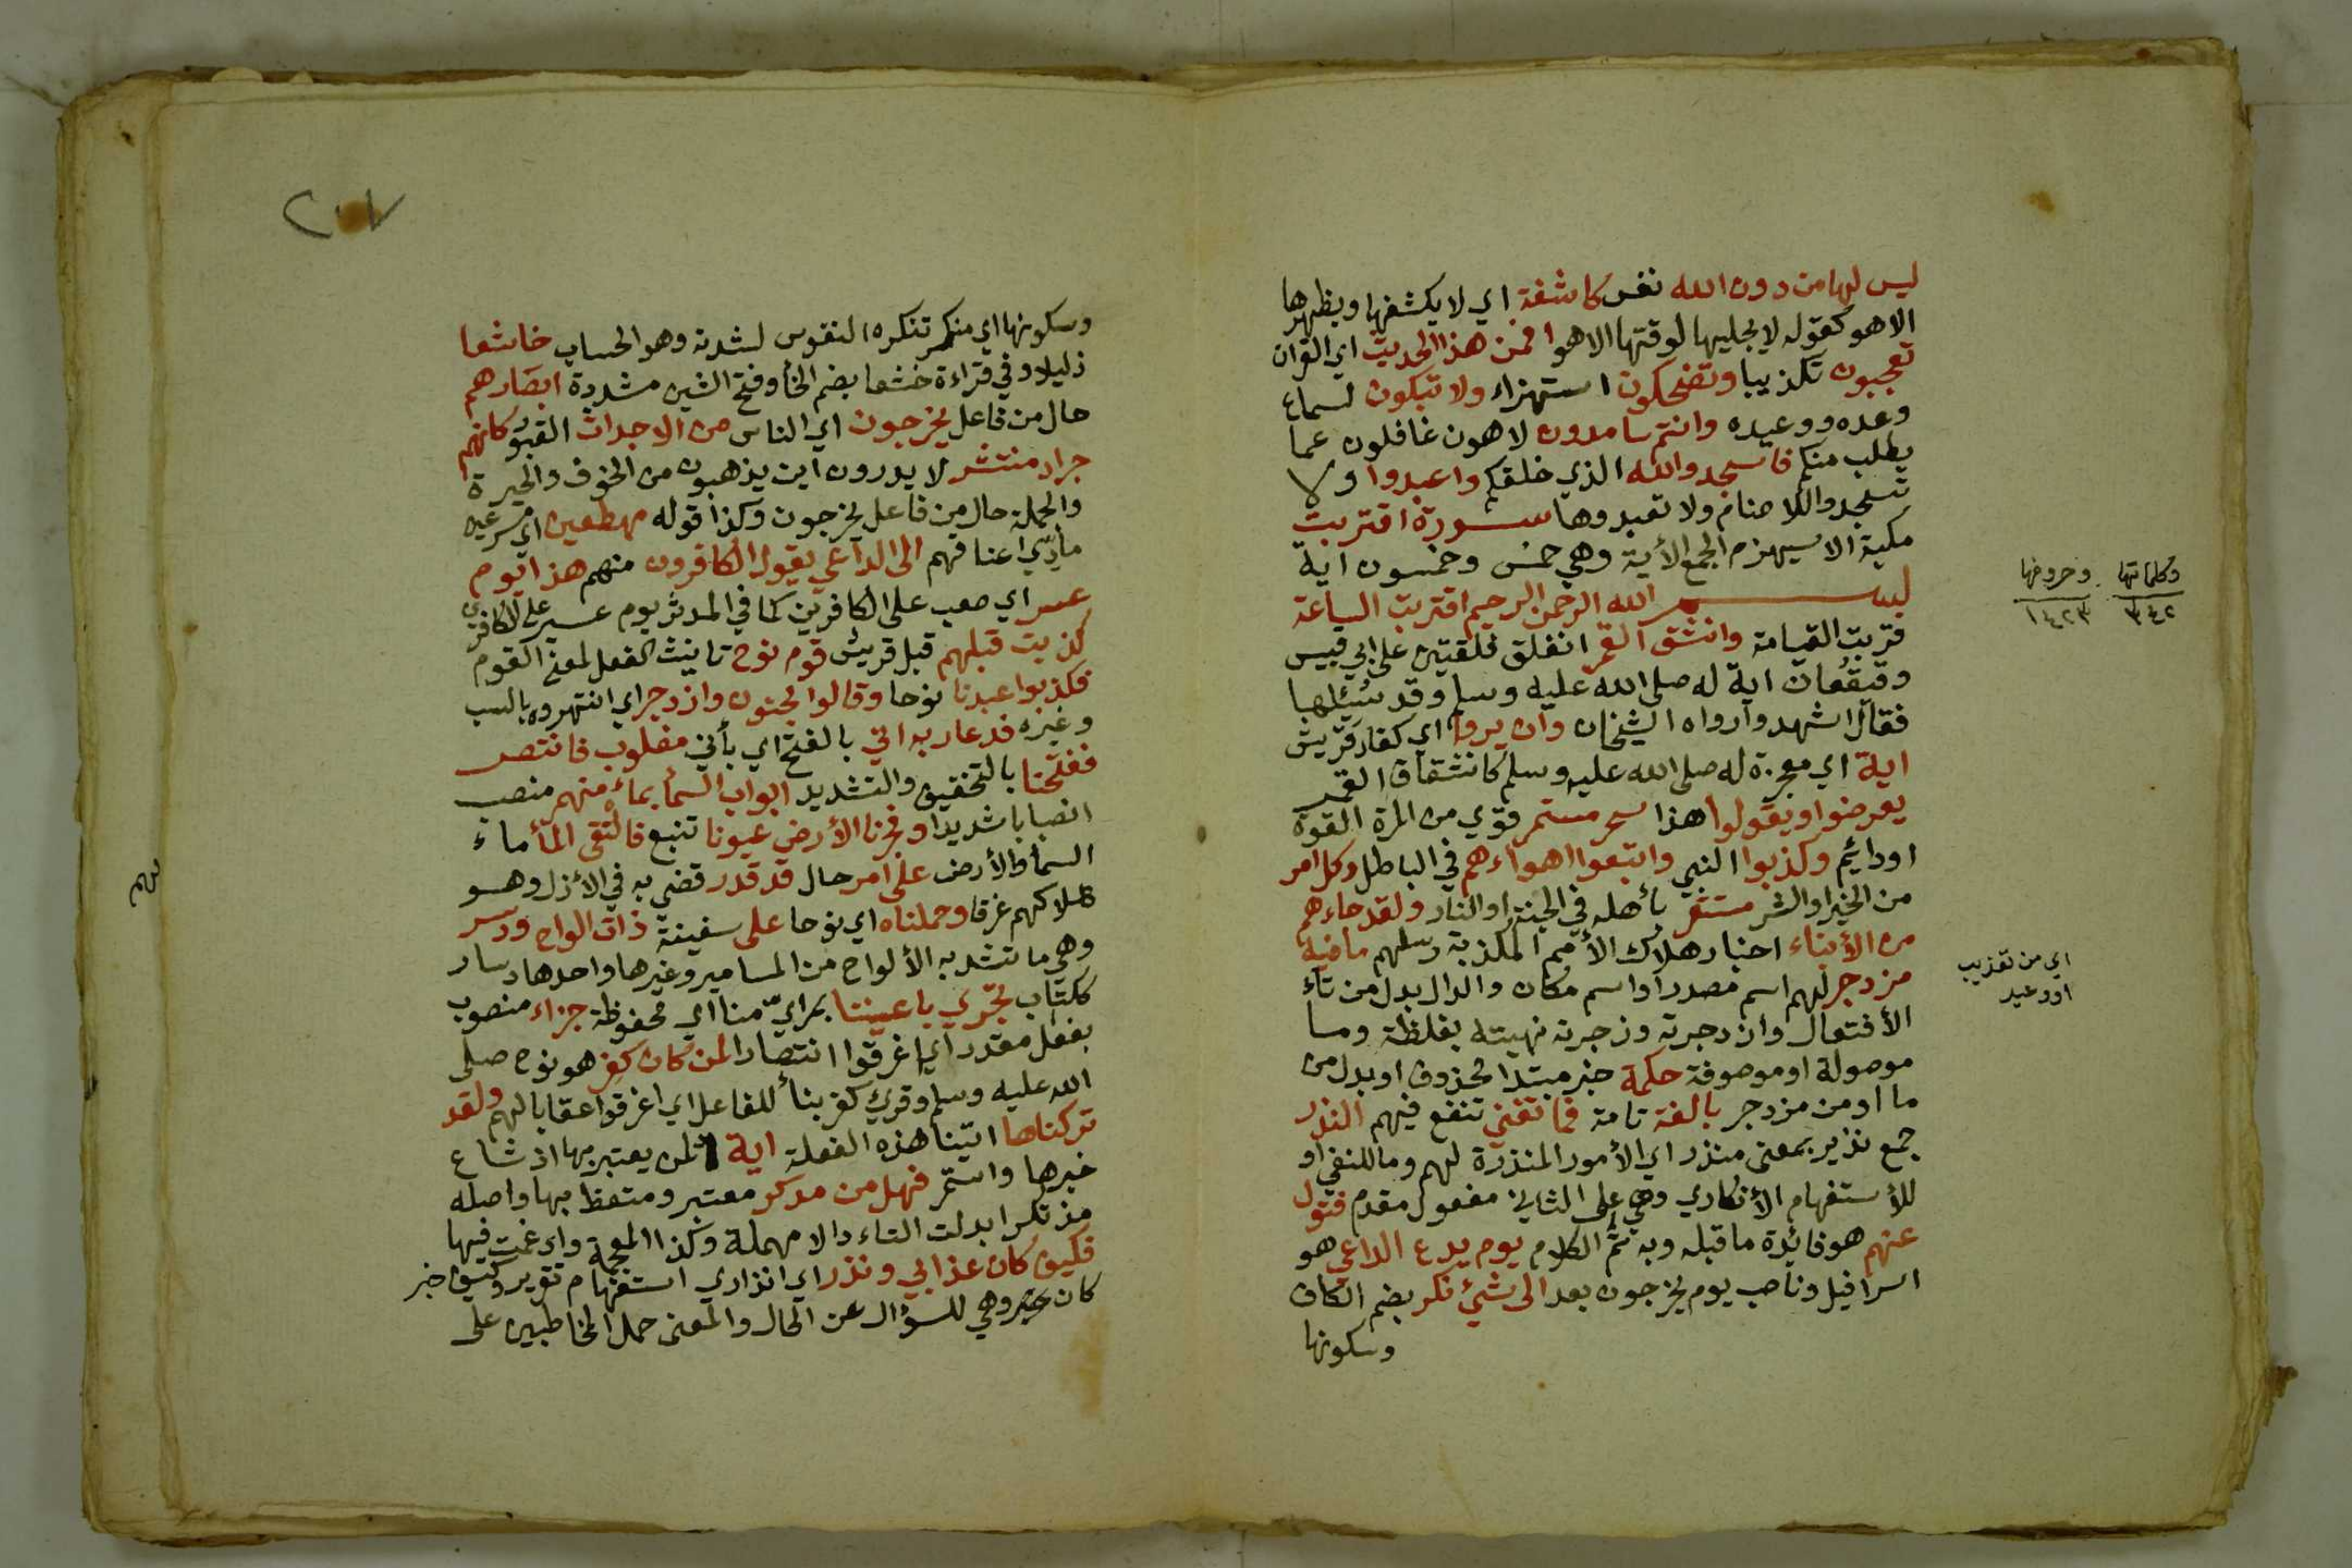 ليس لها من دون الله نفس كاشفة اي لا يكشفها ويظهرها
الا هو كقوله لا يجليها لوقتها الا هو افمن هذا الحديث اي القران
تعجبون تكذيبا وتضحكون استهزاء ولا تبكون لسماع
وعده ووعيده وانتم سامدون لاهون غافلون عما
يطلب منكم فاسجدوا لله الذي خلقكم واعبدوا ولا
تسجدوا للاصنام ولا تعبدوها سورة اقتربت
مكية الا سيهزم الجمع الأية وهي خمس وخمسون اية
بسم الله الرحمن الرحيم اقتربت الساعة
قربت القيامة وانشق القمر انفلق فلقتين على ابي قبيس
وقيقعان اية له صلى الله عليه وسلم وقد سئلها
فقال اشهدوا رواه الشيخان وان يروا اي كفار قريش
اية اي معجزة له صلى الله عليه وسلم كانشقاق القمر
يعرضوا ويقولوا هذا سحر مستمر قوي من المرة القوة
او دائم وكذبوا النبي واتبعوا اهواءهم في الباطل وكل امر
من الخير او الشر مستقر بأهله في الجنة او النار ولقد جاءهم
من الأنباء اخبار هلاك الأمم المكذبة رسلهم ما فيه
مزدجر لهم اسم مصدر او اسم مكان والدال بدل من تاء
الأفتعال وازدجرته وزجرته نهيته بغلظة وما
موصولة او موصوفة حكمة خبر مبتدا محذوف او بدل من
ما او من مزدجر بالغة تامة فما تغني تنفع فيهم النذر
جمع نذير بمعنى منذر اي الأمور المنذرة لهم وما للنفي او
للأستفهام الأنكاري وهي على الثاني مفعول مقدم فتول
عنهم هو فائدة ما قبله وبه تم الكلام يوم يدع الداعي هو
اسرافيل وناصب يوم يخرجون بعد الى شئ نكر بضم الكاف
وسكونها
وكلماتها
٣٤٢
وحروفها
١٤٢٣
اي من تعذيب
او وعيد
٢٠٧
وسكونها اي منكر تنكره النفوس لشدته وهو الحساب خاشعا
ذليلا وفي قراءة خشعا بضم الخأ وفتح الشين مشددة ابصارهم
حال من فاعل يخرجون اي الناس من الاجداث القبور كانهم
جراد منتشر لا يدرون اين يذهبون من الخوف والحيرة
والجملة حال من فاعل يخرجون وكذا قوله مهطعين اي مسرعين
مادي اعناقهم الى الداعي يقول الكافرون منهم هذا يوم
عسر اي صعب على الكافرين كما في المدثر يوم عسير على الكافرين
كذبت قبلهم قبل قريش قوم نوح تانيث الفعل لمعنى القوم
فكذبوا عبدنا نوحا وقالوا مجنون وازدجر اي انتهروه بالسب
وغيره فدعا ربه اني بالفتح اي بأني مغلوب فانتصر
ففتحنا بالتخفيف والتشديد ابواب السمأ بماء منهمر منصب
انصبابا شديدا وفجرنا الأرض عيونا تنبع فالتقى المأ ماء
السمأ والأرض على امر حال قد قدر قضي به في الأزل وهو
هلاكهم غرقا وحملناه اي نوحا على سفينة ذات الواح ودسر
وهي ما تشد به الألواح من المسامير وغيرها واحدها دسار
ككتاب تجري باعيننا بمراي منا اي محفوظة جزاء منصوب
بفعل مقدر اي اغرقوا انتصارا لمن كان كفر هو نوح صلى
الله عليه وسلم وقرئ كفر بنأ للفاعل اي اغرقوا عقابا لهم ولقد
تركناها ابقينا هذه الفعلة اية لمن يعتبر بها اذ شاع
خبرها واستمر فهل من مدكر معتبر ومتعظ بها واصله
مذتكر ابدلت التاء دالا مهملة وكذا المعجمة وادغمت فيها
فكيف كان عذابي ونذر اي انذاري استفهام تقرير وكيف خبر
كان وهي للسؤال عن الحال والمعنى حمل المخاطبين على